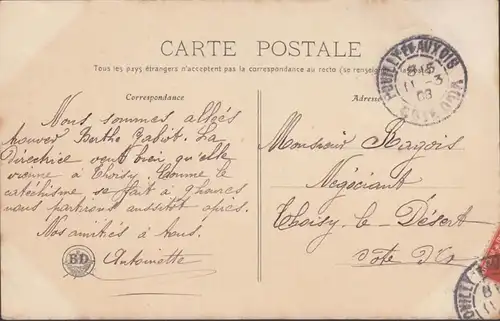 CARTE POSTALE
Tous les pays étrangers n'acceptent pas la correspondance au recto (se renseigner à la
Correspondance
Nous sommes allées
trouver Berthe Jabiot. La
Directrice veut bien qu'elle
vienne à Thoisy. Comme le
catéchisme se fait à 9 heures
nous partirons aussitôt après.
Nos amitiés à tous.
Antoinette
BD
Adresse
Monsieur Ragois
Négociant
Thoisy-le-Désert
Côte d'Or
POUILLY EN AUXOIS
11 - 3
08
CÔTE D'OR
POUILLY
11